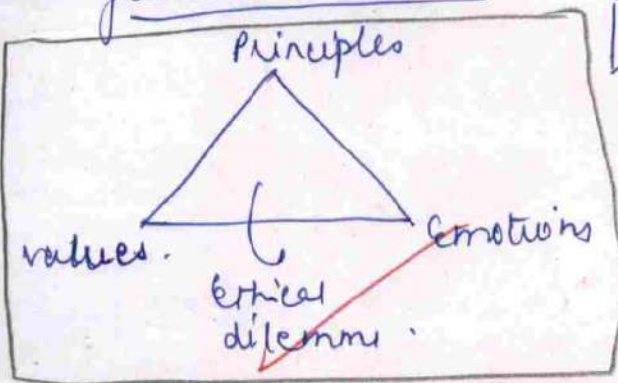 Principles
values.
Emotions
Ethical
dilemma.